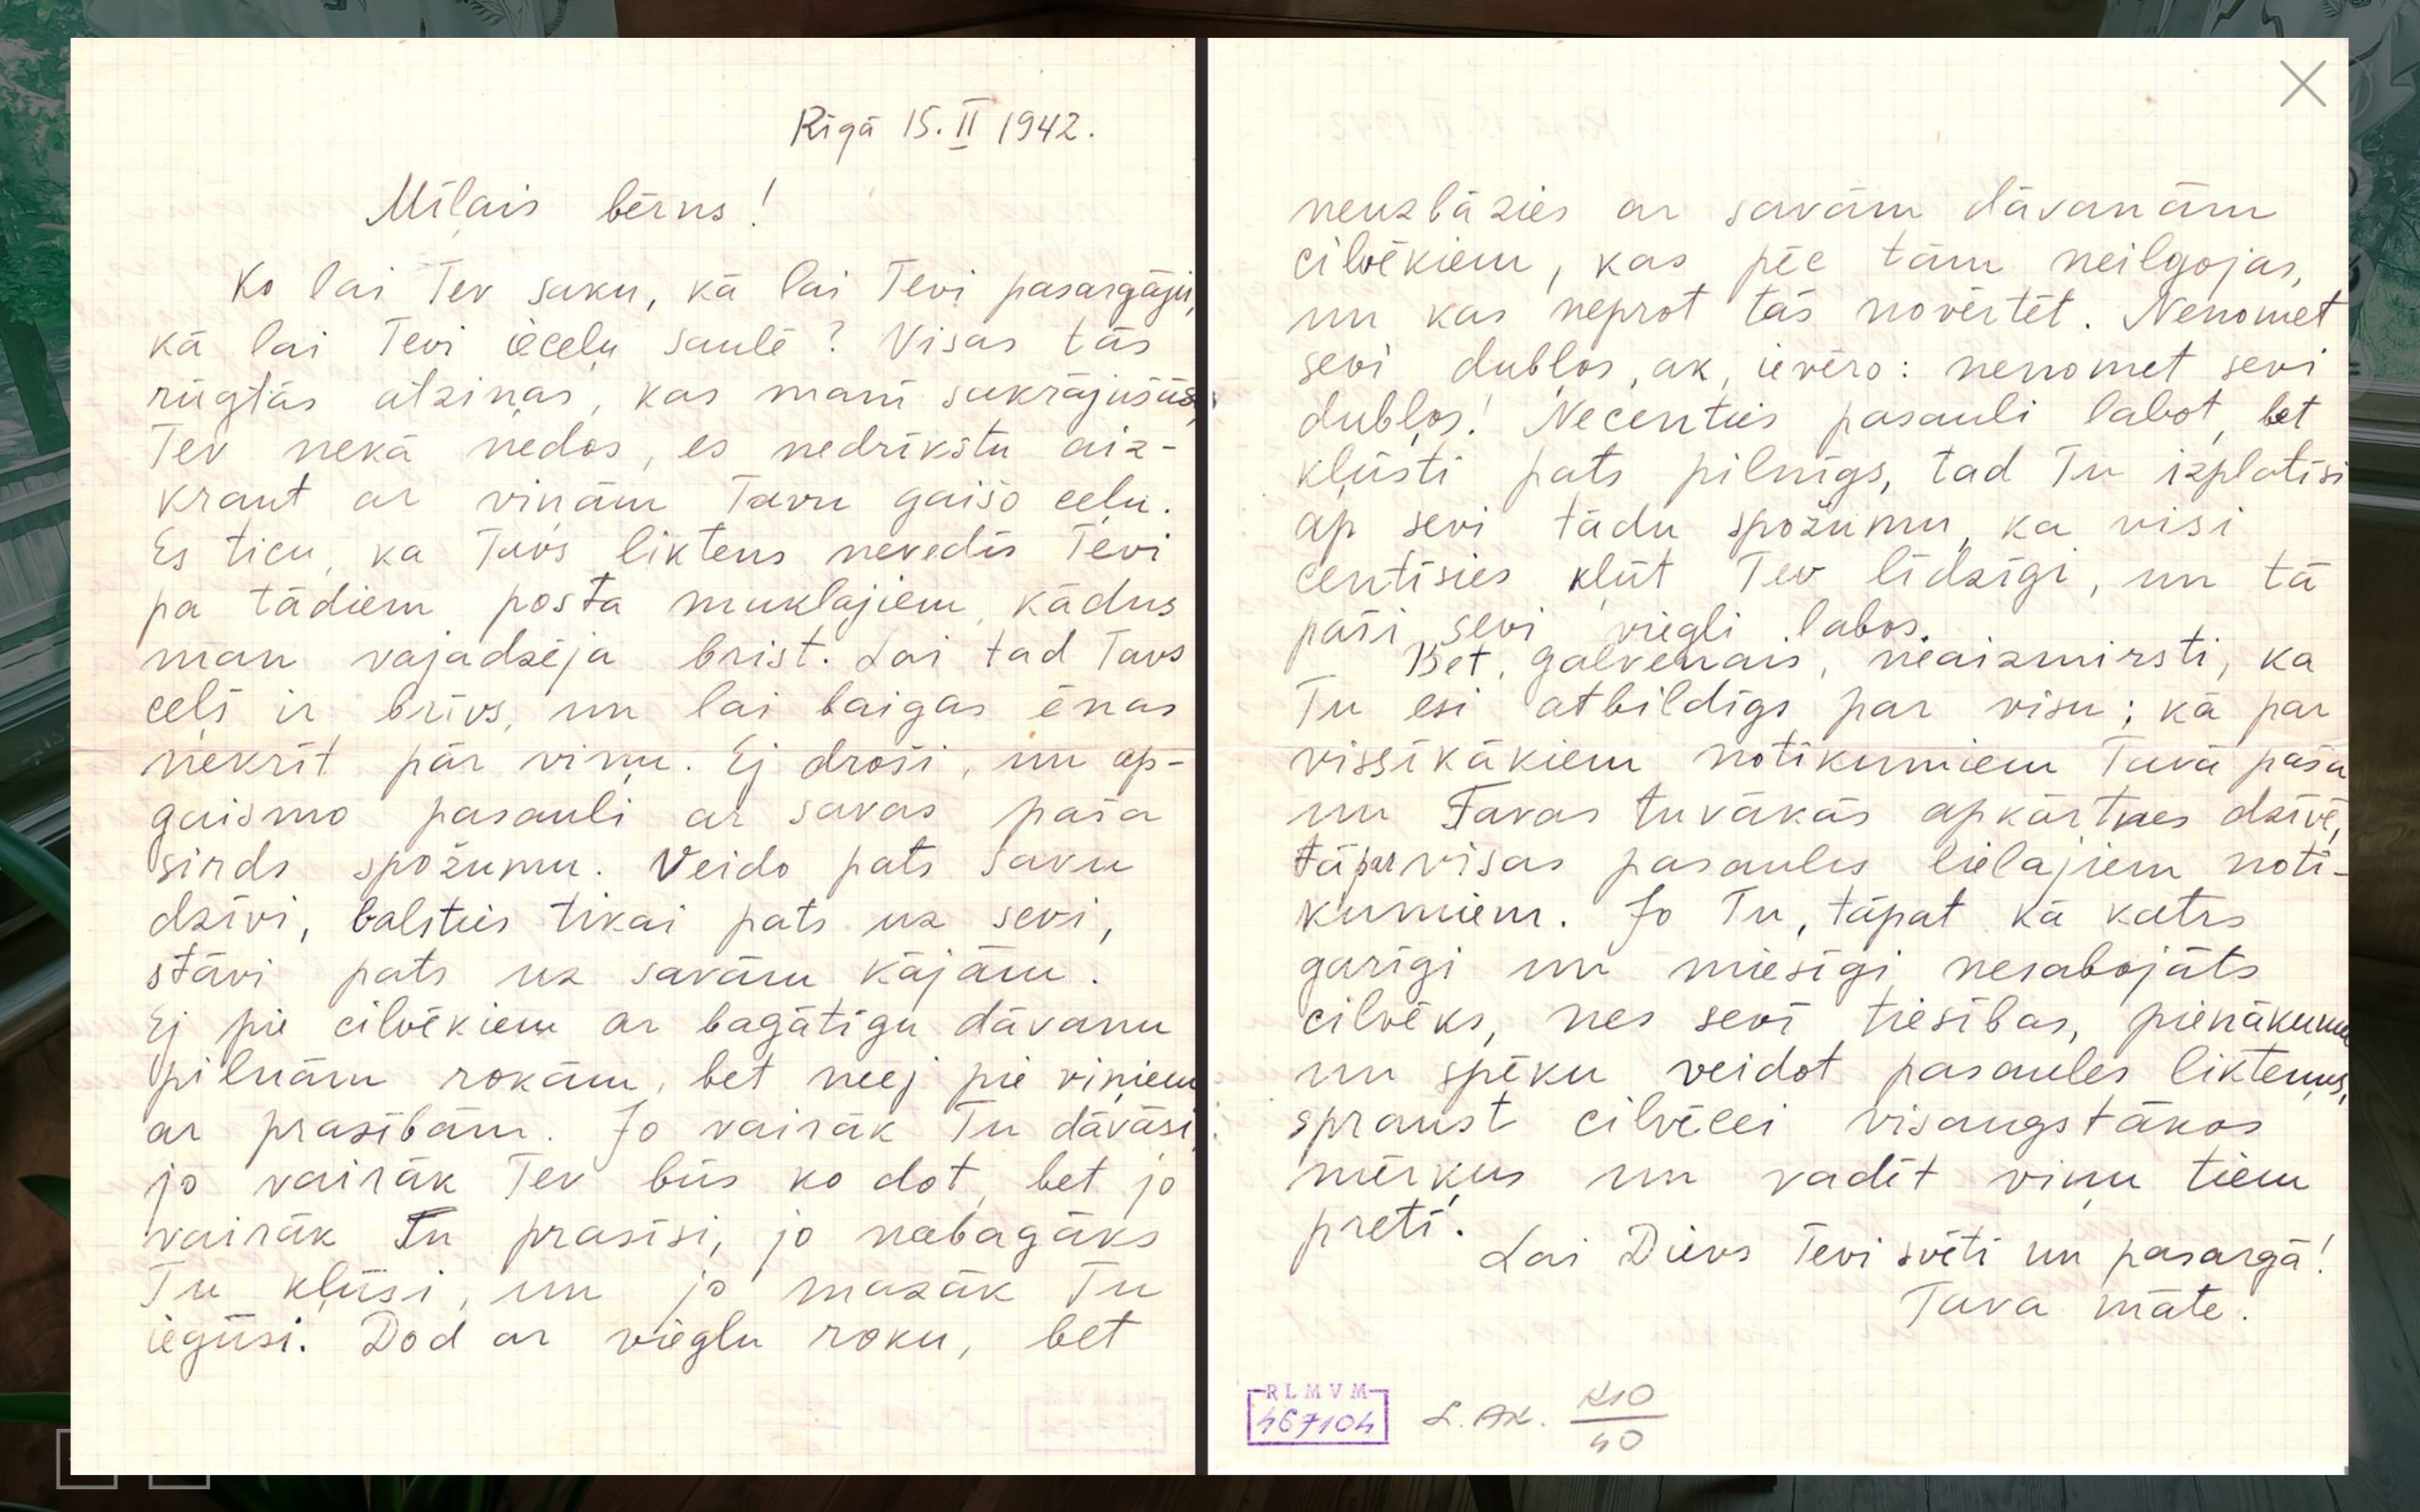 Rīgā 15. II 1942.
Mīlais bērns!
Ko lai Tev saku, kā lai Tevi pasargāju,
kā lai Tevi ieceļu saulē? Visas tās
rūgtās atziņas, kas manī sakrājušās,
Tev nekā nedos, es nedrīkstu aiz-
kraut ar viņām Tavu gaišo ceļu.
Es ticu, ka Tavs liktens nevedīs Tevi
pa tādiem posta muklājiem, kādus
man vajadzēja brist. Lai tad Tavs
ceļš ir brīvs, un lai baigas ēnas
nekrīt pār viņu. Ej droši, un ap-
gaismo pasauli ar savas paša
sirds spožumu. Veido pats savu
dzīvi, balsties tikai pats uz sevi,
stāvi pats uz savām kājām.
Ej pie cilvēkiem ar bagātīgu dāvanu
pilnām rokām, bet neej pie viņiem
ar prasībām. Jo vairāk Tu dāvāsi,
jo vairāk Tev būs ko dot, bet jo
vairāk Tu prasīsi, jo nabagāks
Tu kļūsi, un jo mazāk Tu
iegūsi. Dod ar vieglu roku, bet
neuzbāzies ar savām dāvanām
cilvēkiem, kas pēc tām neilgojas,
un kas neprot tās novērtēt. Nenomet
sevi dubļos, ak, ievēro: nenomet sevi
dubļos! Necenties pasauli labot, bet
kļūsti pats pilnīgs, tad Tu izplatīsi
ap sevi tādu spožumu, ka visi
centīsies kļūt Tev līdzīgi, un tā
paši sevi viegli labos.
Bet, galvenais, neaizmirsti, ka
Tu esi atbildīgs par visu; kā par
vissīkākiem notikumiem Tavā paša
un Tavas tuvākās apkārtnes dzīvē,
tā par visas pasaules lielajiem noti-
kumiem. Jo Tu, tāpat kā katrs
garīgi un miesīgi nesabojāts
cilvēks, nes sevī tiesības, pienākumu
un spēku veidot pasaules likteņus,
spraust cilvēcei visaugstākos
mērķus un vadīt viņu tiem
pretī.
Lai Dievs Tevi svētī un pasargā!
Tava māte.
RLMVM
467104
L. AK. K10
40